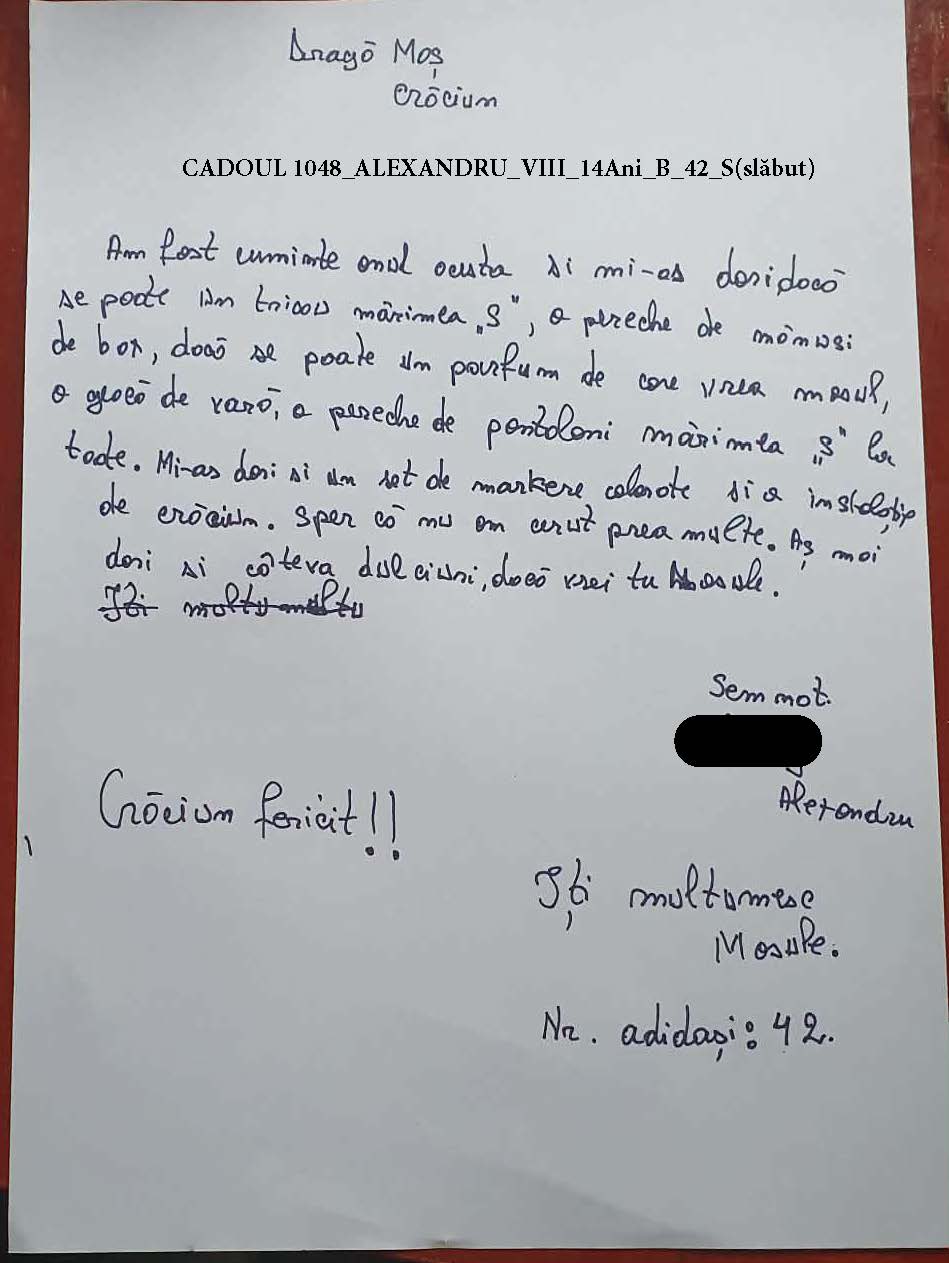 Dragă Moș
Crăciun
CADOUL 1048_ALEXANDRU_VIII_14Ani_B_42_S(slăbut)
Am fost cuminte anul acesta si mi-as doridacă
se poate un tricou mărimea „S", o pereche de mănusi
de box, dacă se poate un parfum de care vrea mosul,
o geacă de vară, o pereche de pantaloni mărimea „S" la
toate. Mi-as dori si un set de markere colorate si o instalație
de crăciun. Sper că nu am cerut prea multe. Aș mai
dori si câteva dulciuri, dacă vrei tu Mosule.
Iți multu multu
Semnat.
Alexandru
Crăciun fericit!!
Iți multumesc
Mosule.
Nr. adidași: 42.